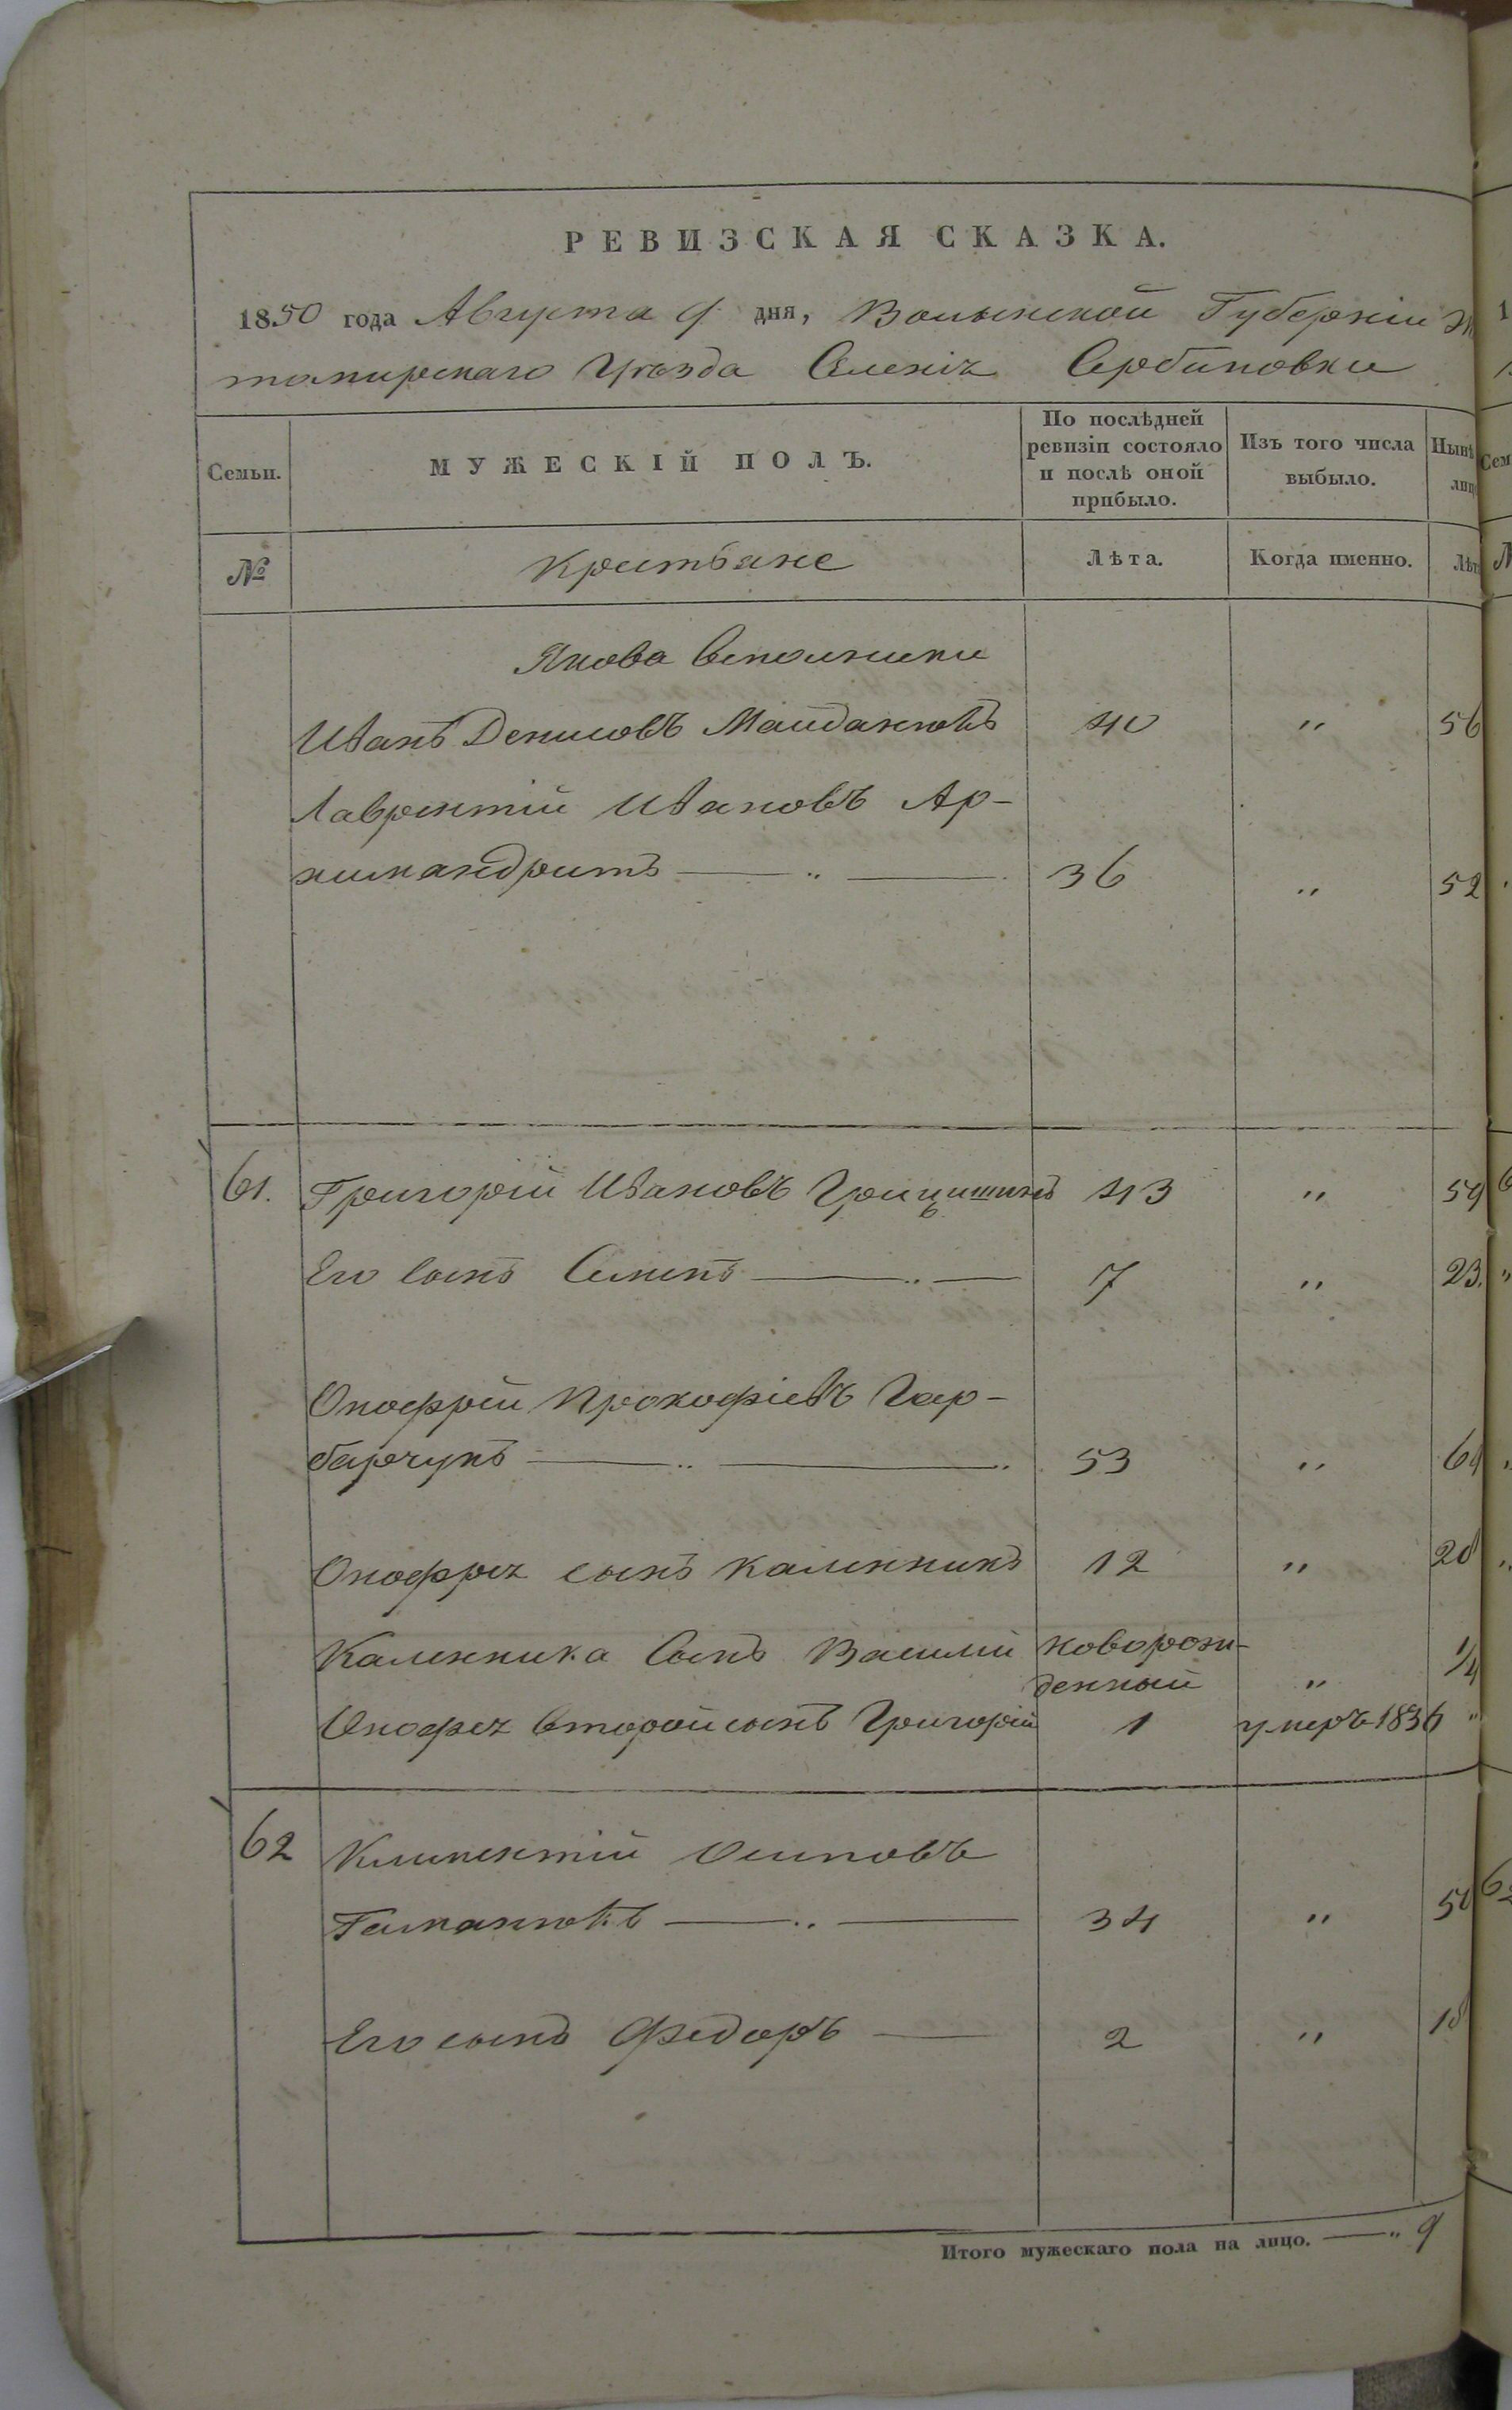 РЕВИЗСКАЯ СКАЗКА.
1850 года Августа 9 дня, Волынской Губерніи Жи
томирскаго Уѣзда Селенія Сербиновки
Семьи. МУЖЕСКІЙ ПОЛЪ. По послѣдней ревизіи состояло и послѣ оной прибыло. Изъ того числа выбыло. Нынѣ лиц
№ Крестьяне Лѣта. Когда именно. Лѣт
Якова
Иванъ Денисовъ Майданюкъ 40 " 56
Лаврентій Ивановъ Ар-
химандритъ 36 " 52
61. Григорій Ивановъ Грицишинъ 43 " 59
Его сынъ Семенъ 7 " 23.
Онофрій Прокофіевъ Гар-
барчукъ 53 " 69
Онофрія сынъ Каленникъ 12 " 28
Каленника сынъ Василій новорож-
денный " 1/4
Онофрія второй сынъ Григорій 1 умеръ 1836 "
62 Климентій Осиповъ
Гаманюкъ 34 " 50
Его сынъ Федоръ 2 " 18
Итого мужескаго пола на лицо. " 9